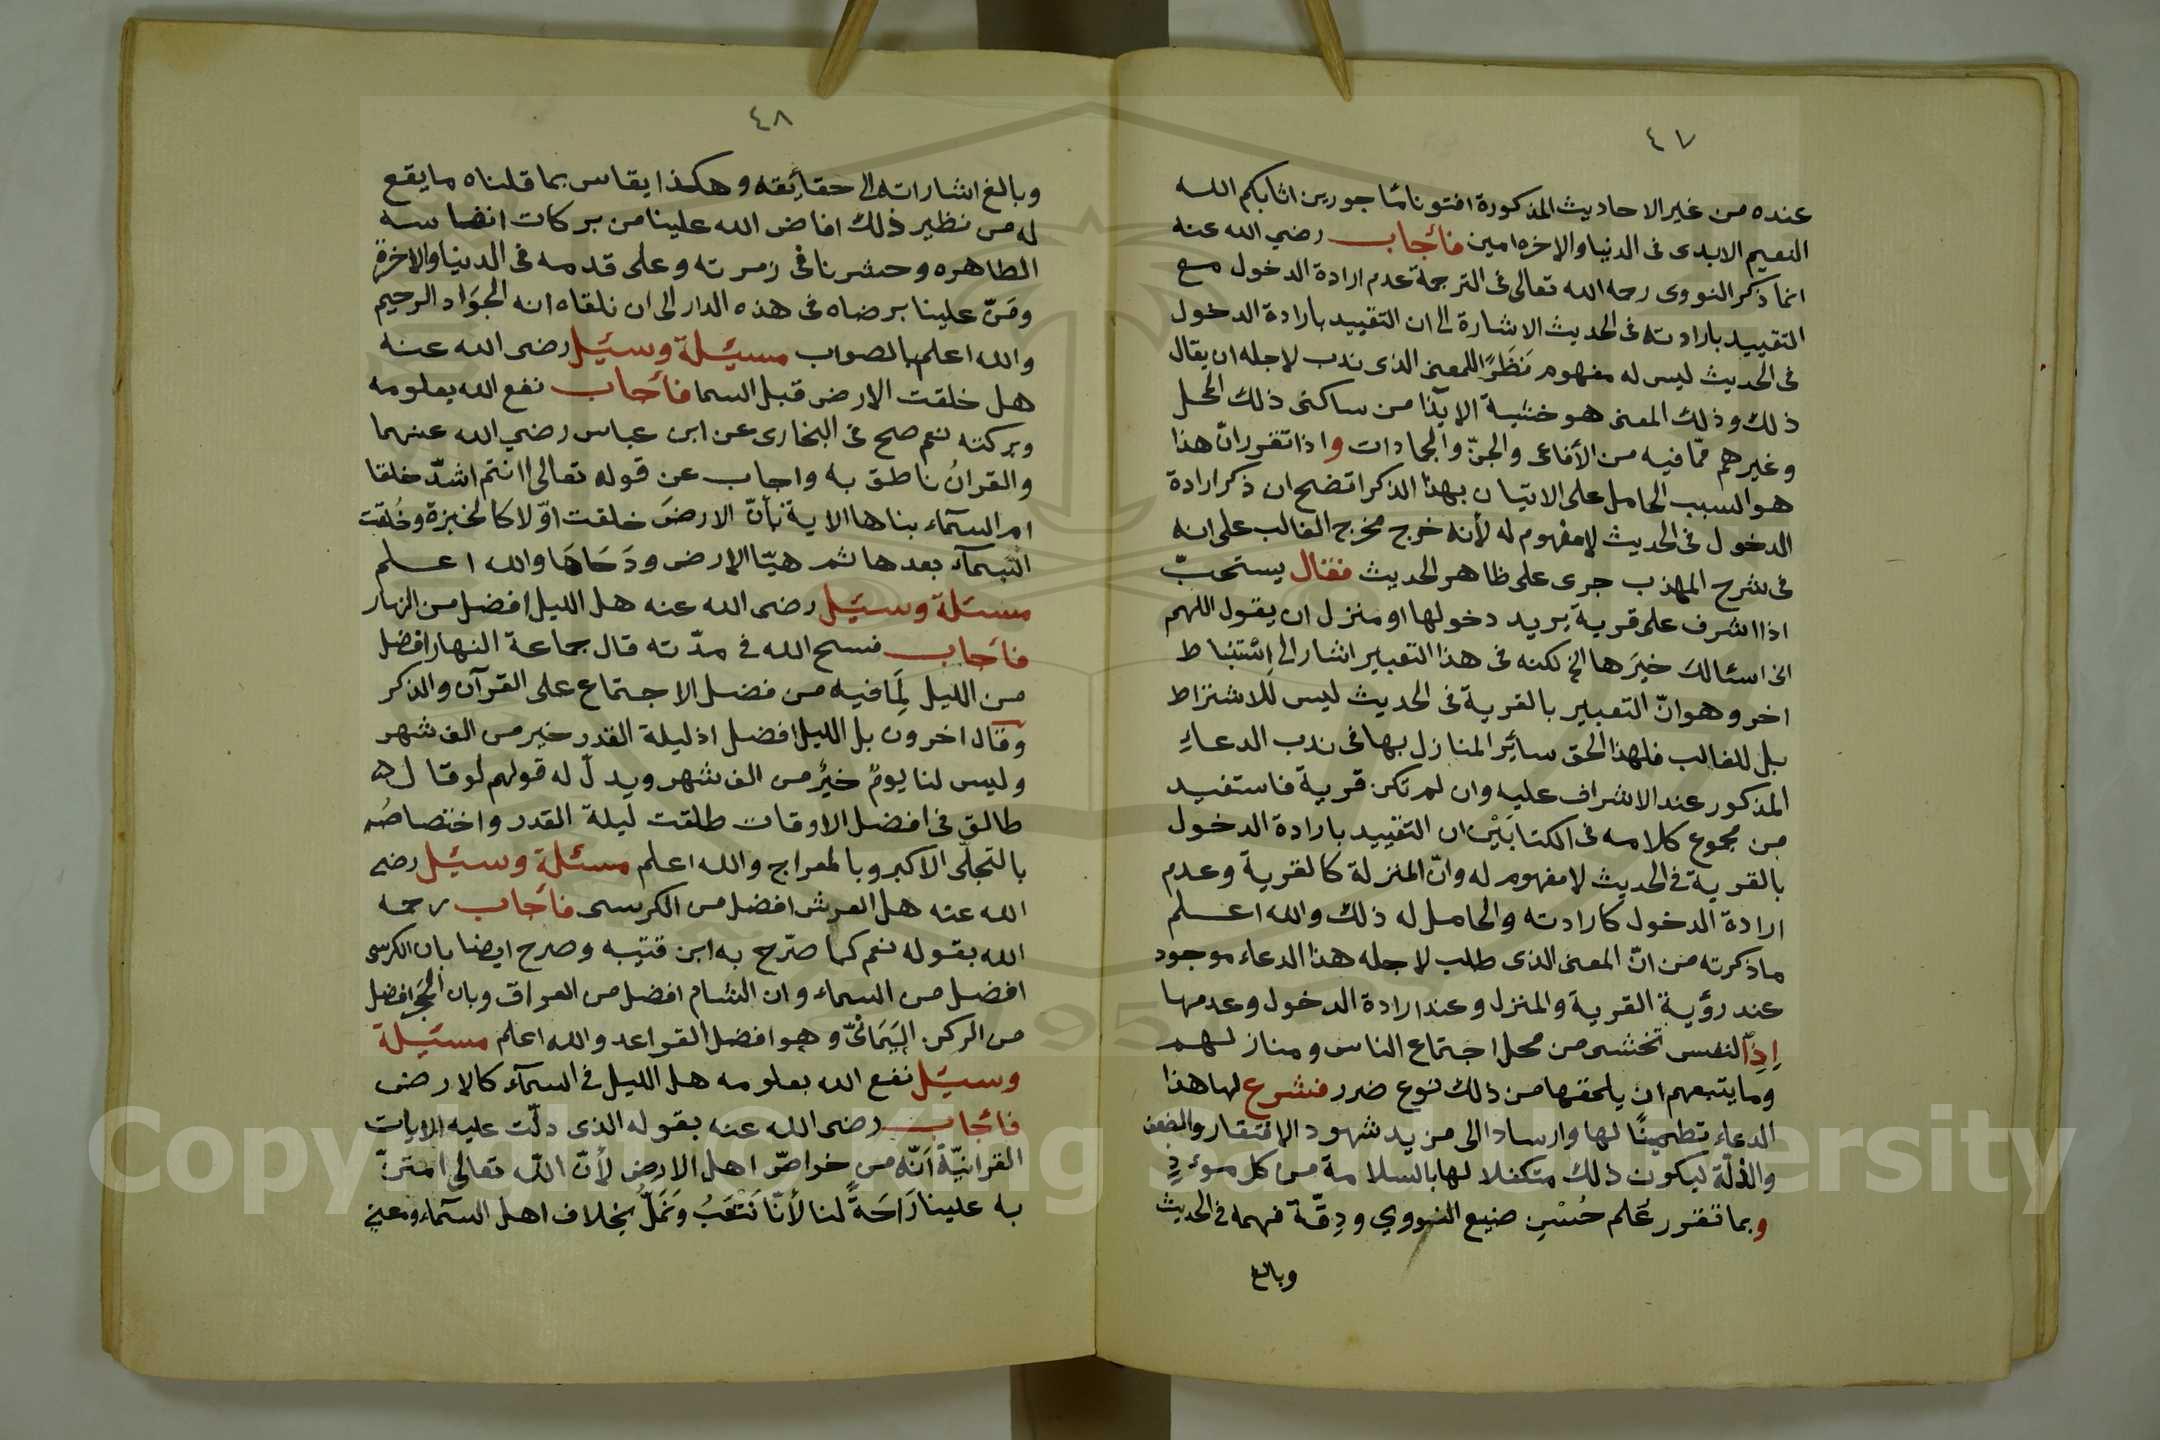 ٤٧
عنده من غير الاحاديث المذكورة افتونا ماجورين اثابكم الله
النعيم الابدى فى الدنيا والاخره امين فأجاب رضي الله عنه
انما ذكر النووى رحمه الله تعالى فى الترجمة عدم ارادة الدخول مع
التقييد بارادته فى الحديث الاشارة الى ان التقييد بارادة الدخول
فى الحديث ليس له مفهوم نَظَرًا للمعنى الذى ندب لاجله ان يقال
ذلك وذلك المعنى هو خشية الايذا من ساكنى ذلك المحل
وغيرهم ممّا فيه من الأفاعى والجنّ والجمادات واذا تقرر انّ هذا
هو السبب الحامل على الاتيان بهذا الذكر اتضح ان ذكر ارادة
الدخول فى الحديث لا مفهوم له لأنه خرج مخرج الغالب على انه
فى شرح المهذب جرى على ظاهر الحديث فقال يستحبّ
اذا اشرف على قرية يريد دخولها او منزل ان يقول اللهم
انى اسئالك خيرَها الخ لكنه فى هذا التعبير اشار الى اِسْتنباط
اخر وهو انّ التعبير بالقرية فى الحديث ليس لِلاشتراط
بل للغالب فلهذا الحق سائِر المنازل بها فى ندب الدعاءِ
المذكور عند الاشراف عليه وان لم تكن قرية فاستفيد
من مجموع كلامه فى الكتابَيْن ان التقييد بارادة الدخول
بالقرية فى الحديث لا مفهوم له وانّ المنزلة كالقرية وعدم
ارادة الدخول كارادته والحامل له ذلك والله اعلم
ما ذكرته من انّ المعنى الذى طلب لاجله هذا الدعاء موجود
عند رؤية القرية والمنزل وعند ارادة الدخول وعدمها
اِذِ النفس تخشى من محل اجتماع الناس ومنازلهم
وما يتبعهم ان يلحقها من ذلك نوع ضرر فشرع لها هذا
الدعاء تطمينًا لها وارسادا الى مزيد شهود الافتقار والضعف
والذلّة ليكون ذلك متكفلا لها بالسلامة من كل موءذٍ
وبما تقرر عُلم حُسْنِ صنيع النووي ودِقّة فهمه فى الحديث
وبالغ
٤٨
وبالغ اشاراته الى حقائِقه وهكذا يقاس بما قلناه ما يقع
له من نظير ذلك افاض الله علينا من بركات انفاسه
الطاهره وحشرنا فى زمرته وعلى قدمه فى الدنيا والاخرة
ومَنّ علينا برضاه فى هذه الدار الى ان نلقاه انه الجوَاد الرحيم
والله اعلم بالصواب مسئلة وسئيل رضى الله عنه
هل خلقت الارض قبل السما فأجاب نفع الله بعلومه
وبركته نعم صح فى البخارى عن ابن عباس رضي الله عنهما
والقرانُ ناطق به واجاب عن قوله تعالى اانتم اشدّ خلقا
ام السمآء بناها الاية بأنّ الارضَ خلقت اوّلا كالخبزة وخُلقت
السمآء بعدها ثم هيّا الارض ودَحَاهَا والله اعلم
مسئلة وسئيل رضى الله عنه هل الليل افضل من النهار
فأجاب فسح الله فى مدّته قال جماعة النهار افضل
من الليل لِمَا فيه من فضل الاجتماع على القرآن والذكر
وقال اخرون بل الليل افضل اذ ليلة القدر خير من الف شهر
وليس لنا يومٌ خيرٌ من الف شهر ويدلّ له قولهم لو قال
طالق فى افضل الاوقات طلقت ليلة القدر واختصاصُه
بالتجلّى الاكبر وبالمعراج والله اعلم مسئلة وسئيل رضى
الله عنه هل العرش افضل من الكرسى فأجاب رحمه
الله بقوله نعم كما صرّح به ابن قتيبه وصرح ايضا بان الكرسى
افضل من السماء وان الشام افضل من العراق وبان الحجَر افضل
من الركن اليَمَانىّ وهو افضل القواعد والله اعلم مسئيلة
وسئيل نفع الله بعلومه هل الليل فى السمآء كالارض
فأجاب رضى الله عنه بقوله الذى دلّت عليه الايات
القرانيّة اَنّه من خواصّ اهل الارض لأنّ الله تعالى امتنّ
به علينا رَاحَةً لنا لأنّا نَتْعَبُ ونَمَلُّ بخلاف اهل السمآء ومعنى
Copyright © King Saud University